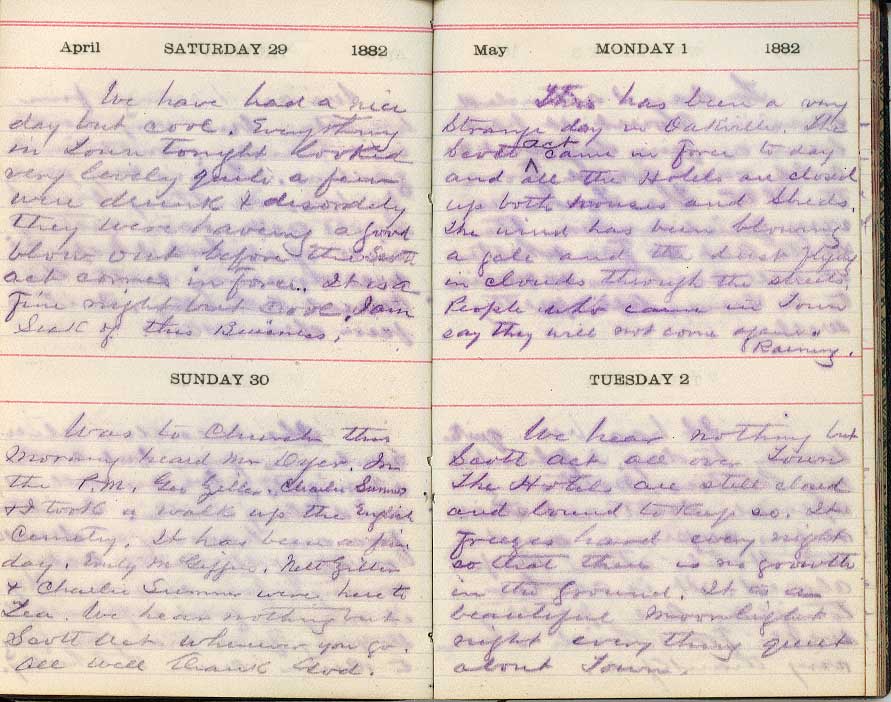 April SATURDAY 29 1882
We have had a nice
day but cool. Everything
in Town tonight looked
very lovely quite a few
were drunk & disordely
they were having a good
blow out before the Scott
act comes in force. It is a
fine night but cool. I am
Sick of this Business.
SUNDAY 30
Was to Church this
Morning heard Mr Dyer. In
the P.M. Geo Charlie Sumner
& I took a walk up the English
Cemetry. It has been a fine
day. Emily Nett
& Charlie Sumner were here to
Tea. We hear nothing but
Scott Act wherever you go.
All well Thank God.
May MONDAY 1 1882
This has been a very
Strange day in Oakville. The
Scott act came in force to day
and all the Hotels are closed
up both Houses and Sheds.
The wind has been blowing
a gale and the dust flying
in clouds through the streets.
People who came in Town
say they will not come again.
Raining.
TUESDAY 2
We hear nothing but
Scott Act all over Town
The Hotels are still closed
and bound to keep so. It
freezes hard every night
so that there is no growth
in the ground. It is a
beautiful Moonlight
night everything quiet
about Town.